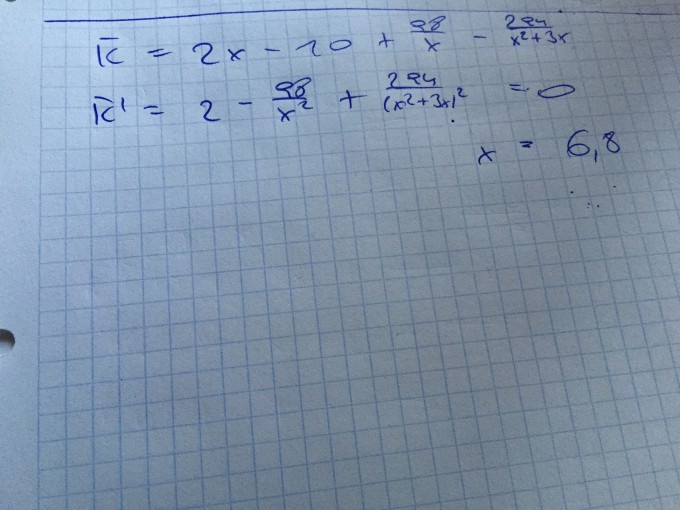 K̄ = 2x - 10 + 98/x - 294/x²+3x
K̄' = 2 - 98/x² + 294/(x²+3x)² = 0
x = 6,8